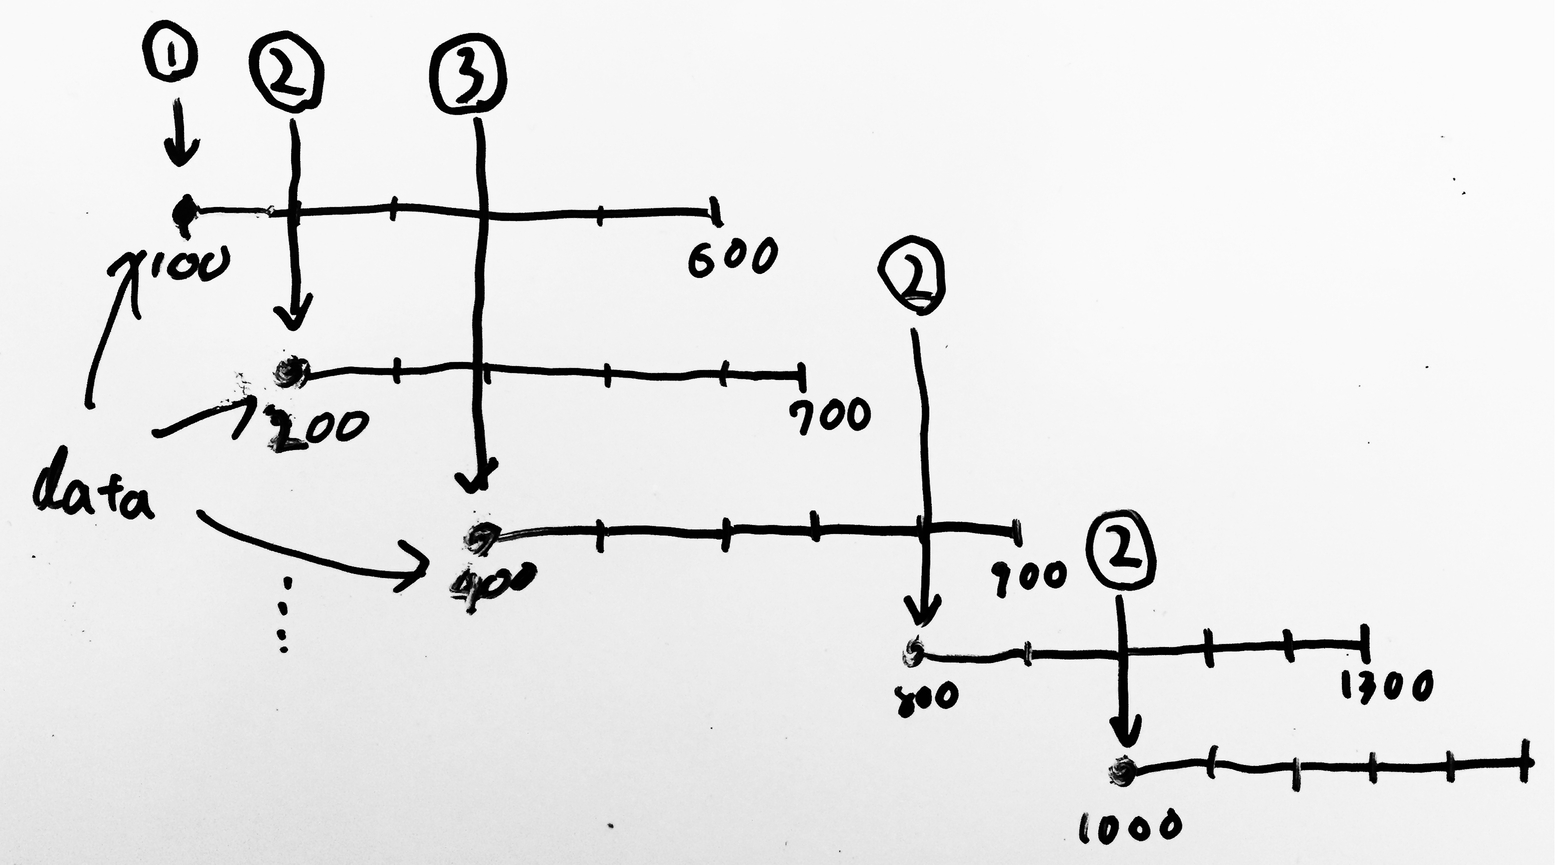 ① ② ③
100 600
②
200 700
data
400 900
②
800 1300
1000